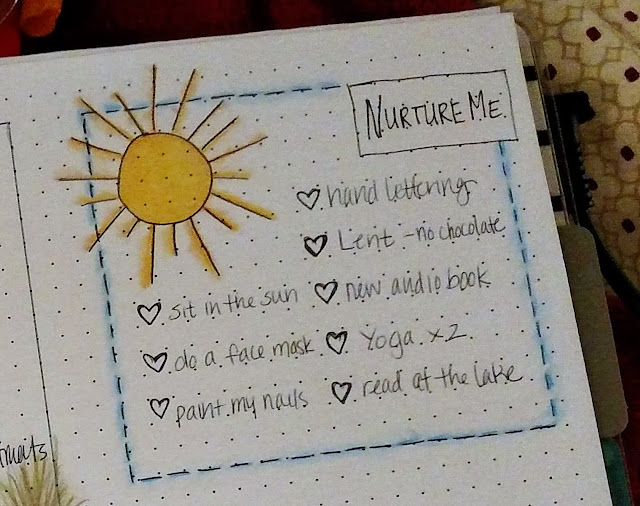 NURTURE ME.
hand lettering
Lent - no chocolate
sit in the sun
new audio book
do a face mask
Yoga x2
paint my nails
read at the lake